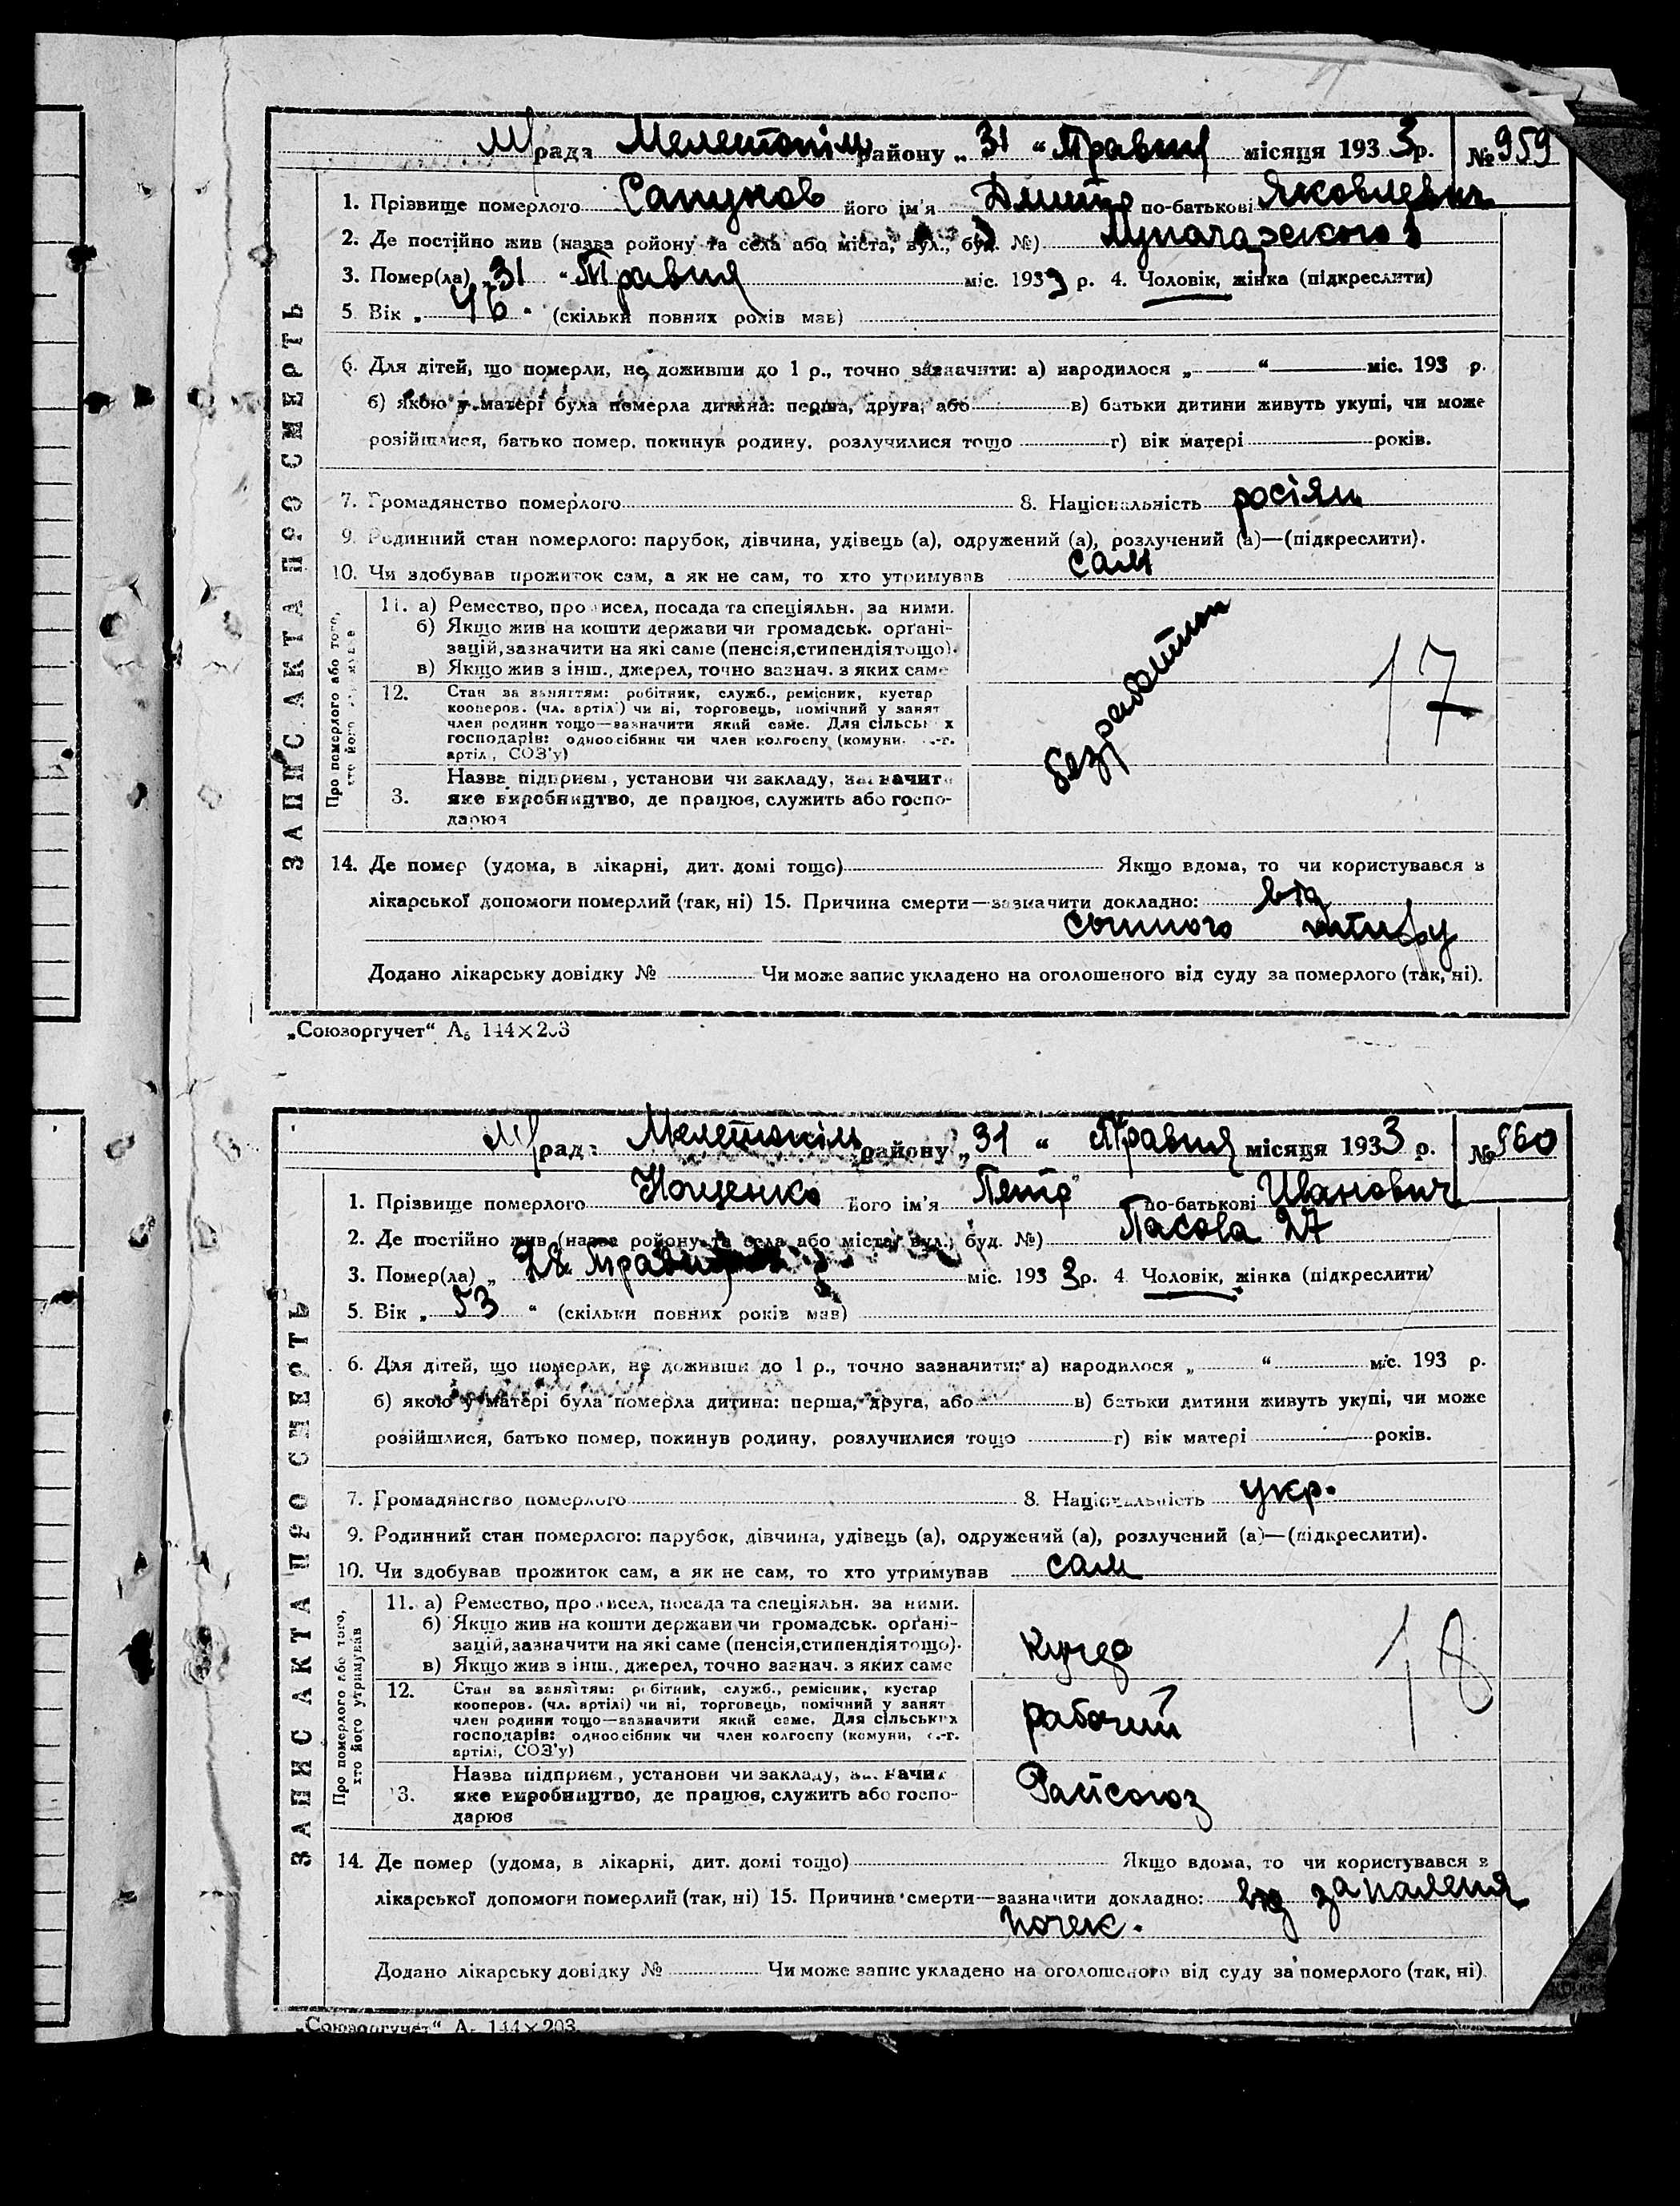 М/рада Мелетопіль району „31“ Травня місяця 1933 р. № 959
1. Прізвище померлого Сапунов його ім'я Дмитро по-батькові Яковлевич
2. Де постійно жив (назва ройону та села або міста, вул., буд. №) Луначарского
3. Помер(ла) „31“ Травня міс. 1933 р. 4. Чоловік, жінка (підкреслити)
5 Вік „46“ (скільки повних років мав)
6. Для дітей, що померли, не доживши до 1 р., точно зазначити: а) народилося „ “ міс. 193 р.
б) якою у матері була померла дитина: перша, друга, або в) батьки дитини живуть укупі, чи може
розійшлися, батько помер, покинув родину, розлучилися тощо г) вік матері років.
7. Громадянство померлого 8. Національність росіян
9. Родинний стан померлого: парубок, дівчина, удівець (а), одружений (а), розлучений (а)—(підкреслити).
10. Чи здобував прожиток сам, а як не сам, то хто утримував сам
ЗАПИС АКТА ПРО СМЕРТЬ
Про померлого або того,
11. а) Ремество, промисел, посада та спеціяльн. за ними.
б) Якщо жив на кошти держави чи громадськ. орґані-
зацій, зазначити на які саме (пенсія, стипендія тощо).
в) Якщо жив з інш., джерел, точно вазнач. з яких саме
12. Стан за заняттям: робітник, служб., ремісник, кустар
кооперов. (чл. артілі) чи ні, торговець, помічний у занят
член родини тощо—зазначити який саме. Для сільських
господарів: одноосібник чи член колгоспу (комуни, с.-г.
артіл., СОЗ'у)
Назва підприєм., установи чи закладу, зазначити
3. яке виробництво, де працює, служить або госпо-
дарює
безработный
17
14. Де помер (удома, в лікарні, дит. домі тощо) Якщо вдома, то чи користувався з
лікарської допомоги померлий (так, ні) 15. Причина смерти—зазначити докладно: від
сыпного тифу
Додано лікарську довідку № Чи може запис укладено на оголошеного від суду за померлого (так, ні).
„Союзоргучет“ А₅ 144×203
М/рада Мелетопіль району „31“ Травня місяця 1933 р. № 960
1. Прізвище померлого Нощенко його ім'я Петро по-батькові Иванович
2. Де постійно жив (назва ройону та села або міста, вул., буд. №) Пасова 27
3. Помер(ла) „28 Травня міс. 1933 р. 4. Чоловік, жінка (підкреслити)
5. Вік „53“ (скільки повних років мав)
6. Для дітей, що померли, не доживши до 1 р., точно зазначити: а) народилося „ “ міс. 193 р.
б) якою у матері була померла дитина: перша, друга, або в) батьки дитини живуть укупі, чи може
розійшлися, батько помер, покинув родину, розлучилися тощо г) вік матері років.
7. Громадянство померлого 8. Національність укр.
9. Родинний стан померлого: парубок, дівчина, удівець (а), одружений (а), розлучений (а)—(підкреслити).
10. Чи здобував прожиток сам, а як не сам, то хто утримував сам
ЗАПИС АКТА ПРО СМЕРТЬ
Про померлого або того,
хто його утримував
11. а) Ремество, промисел, посада та спеціяльн. за ними.
б) Якщо жив на кошти держави чи громадськ. орґані-
зацій, зазначити на які саме (пенсія, стипендія тощо).
в) Якщо жив з інш., джерел, точно вазнач. з яких саме
кучер
12. Стан за заняттям: робітник, служб., ремісник, кустар
кооперов. (чл. артілі) чи ні, торговець, помічний у занят
член родини тощо—зазначити який саме. Для сільських
господарів: одноосібник чи член колгоспу (комуни, с.-г.
артілі, СОЗ'у)
рабочий
Назва підприєм., установи чи закладу, зазначит
3. яке виробництво, де працює, служить або госпо-
дарює
Райсоюз
18
14. Де помер (удома, в лікарні, дит. домі тощо) Якщо вдома, то чи користувався з
лікарської допомоги померлий (так, ні) 15. Причина смерти—зазначити докладно: від запаленя
почек.
Додано лікарську довідку № Чи може запис укладено на оголошеного від суду за померлого (так, ні).
„Союзоргучет“ А₅ 144×203